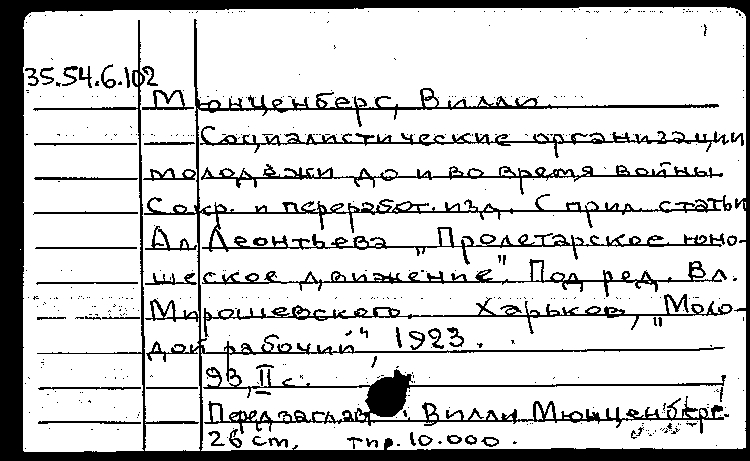 35.54.6.102
Мюнценберг, Вилли.
Социалистические организации
молодёжи до и во время войны.
Сокр. и переработ. изд. С прил. статьи
Ал. Леонтьева „Пролетарское юно-
шеское движение". Под ред. Вл.
Мирошевского. Харьков, „Моло-
дой рабочий", 1923.
93, II с.
Перед заглав. : Вилли Мюнценберг.
26 cm. тир. 10.000.